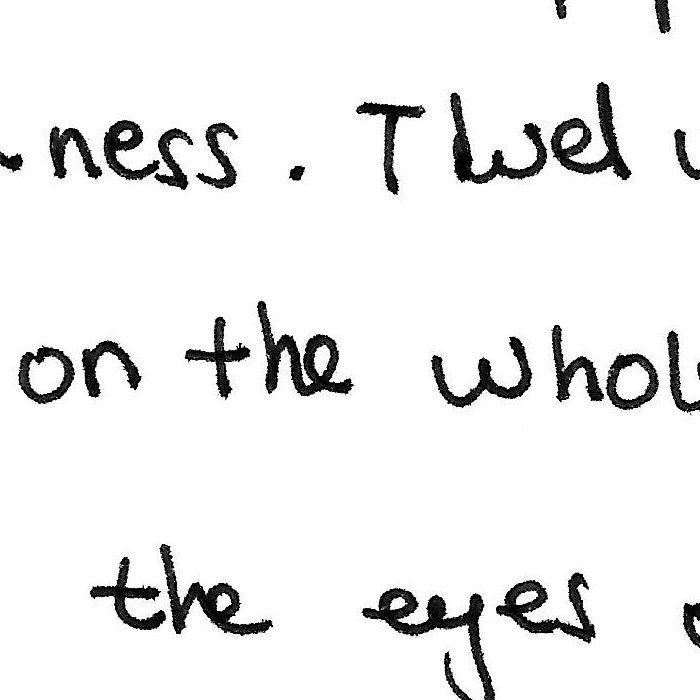 ness. Twel
on the whol
the eyes